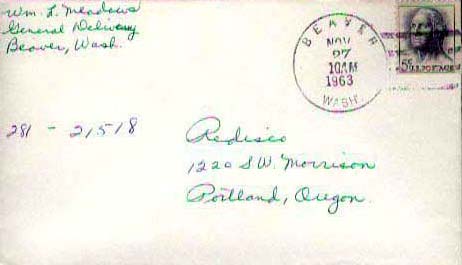 Wm. L. Meadows
General Delivery
Beaver, Wash.
BEAVER
NOV
27
10AM
1963
WASH.
5¢ U.S. POSTAGE
281 - 21518
Redisco
1220 S.W. Morrison
Portland, Oregon.